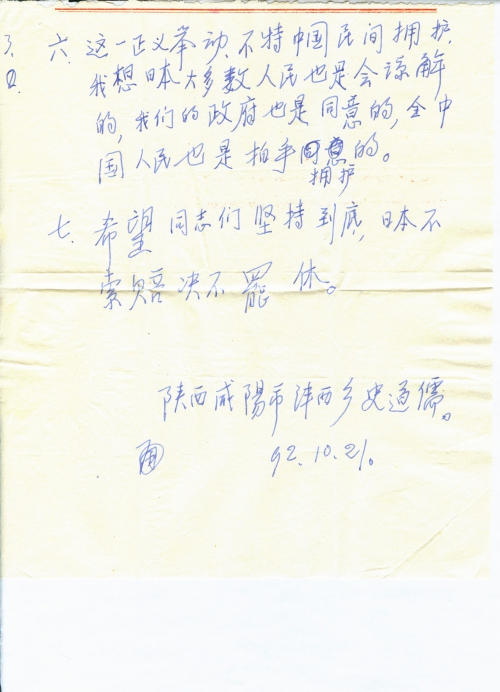 六、这一正义举动,不特中国民间拥护,
我想日本大多数人民也是会谅解
的,我们的政府也是同意的,全中
国人民也是拍手拥护的。
七、希望同志们坚持到底,日本不
索赔决不罢休。
陕西咸阳市沣西乡史道儒。
92.10.21.